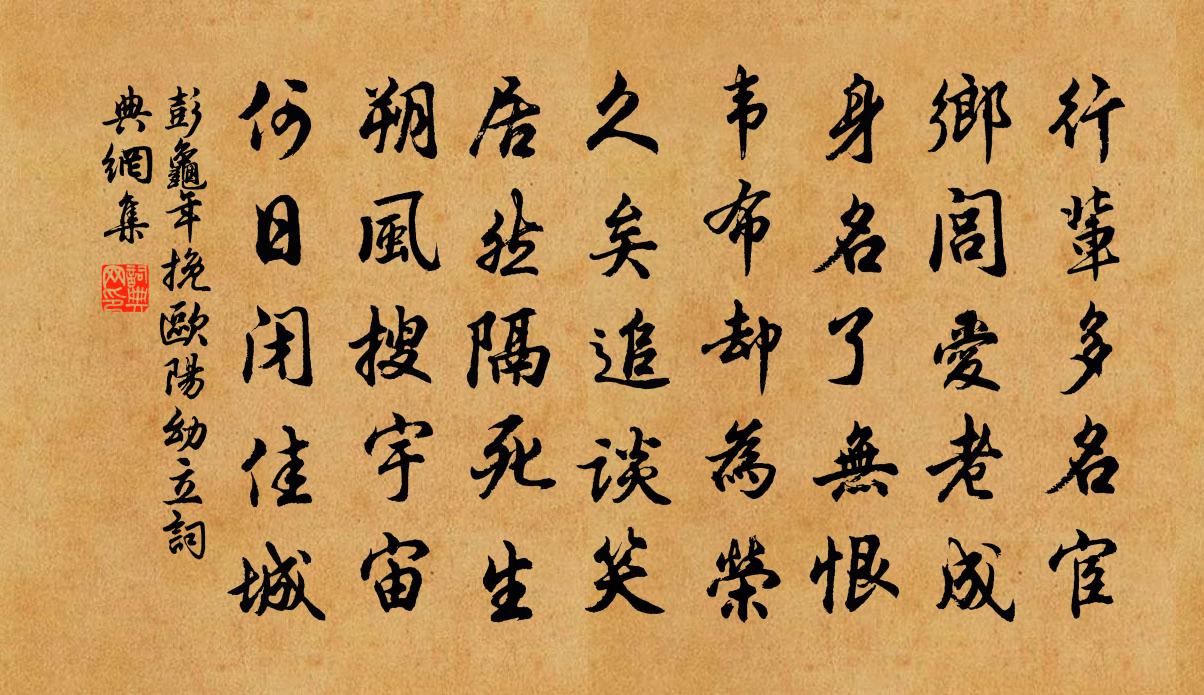 行輩多名宦
鄉閭愛老成
身名了無恨
韦布却為榮
久矣追談笑
居然隔死生
朔風搜宇宙
何日闭佳城
彭龜年挽歐陽幼立詞
典網集
詞典网印